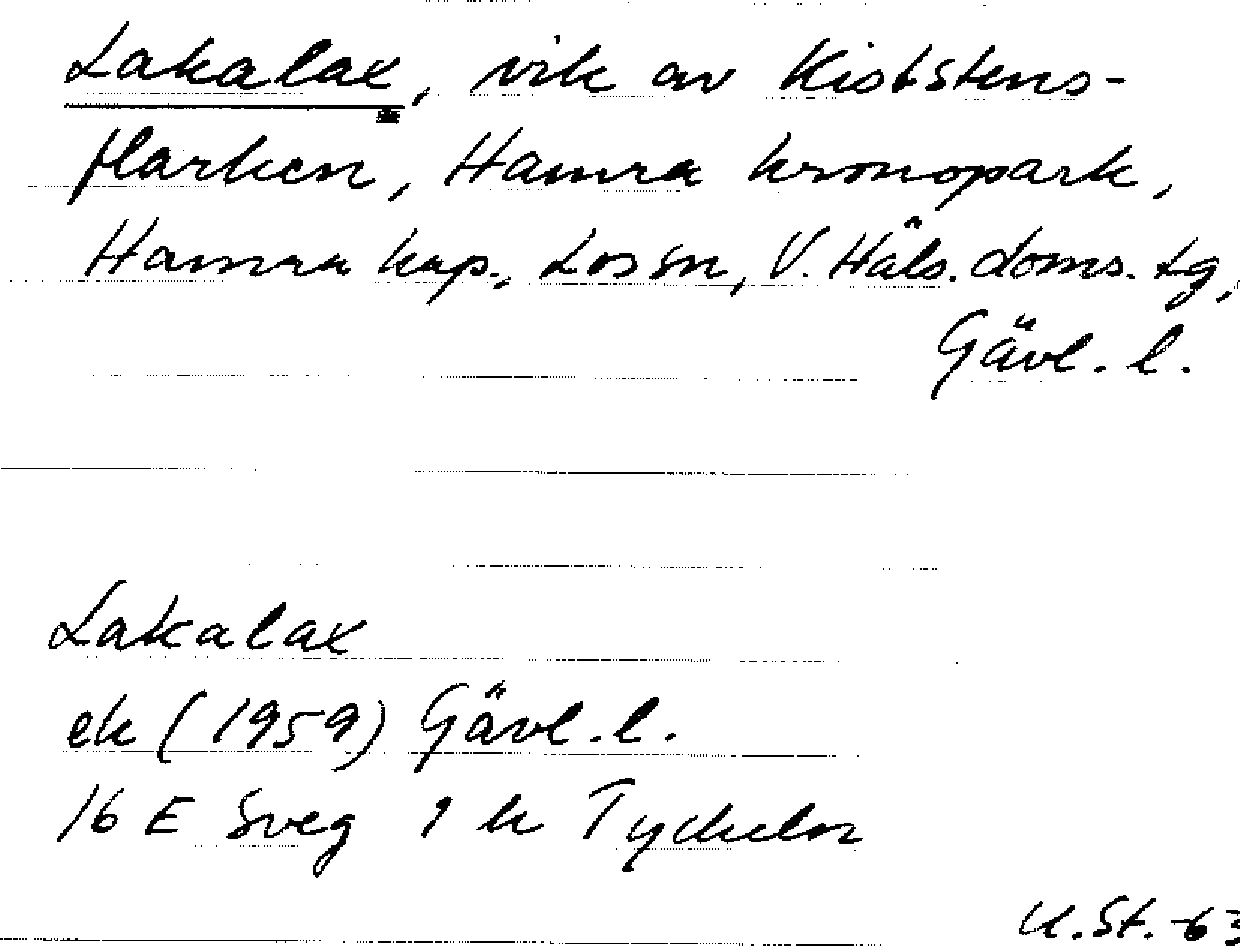 Lakalax, vik av Kistens-
flarken, Hamra kronopark,
Hamra kap., Los sn, V. Häls. doms. tg,
Gävl. l.
Lakalax
ek (1959) Gävl. l.
16 E Sveg 1 h Tyckeln
U. St. -63